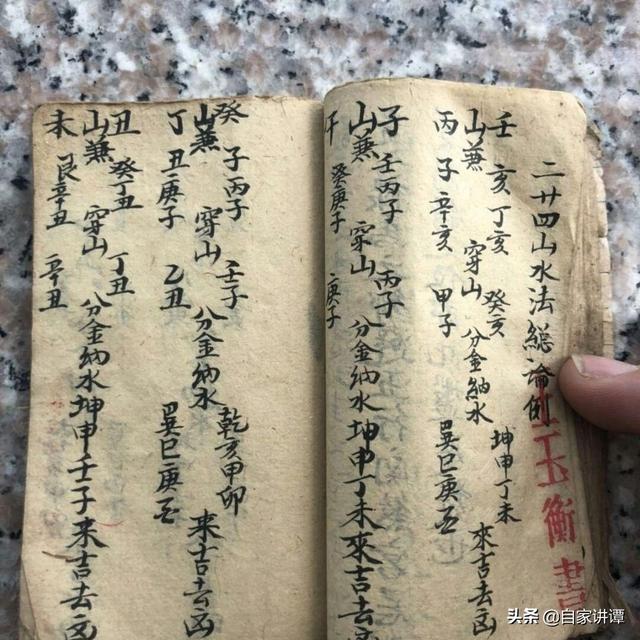 二廿四山水法総論
玉衡書
壬 亥 丁亥 癸亥 坤申丁未
山兼 穿山 分金納水 來吉去凶
丙 子 辛亥 甲子 巽巳庚酉
子 壬丙子 丙子
山兼 穿山 分金納水坤申丁未來吉去凶
午 癸庚子 庚子
癸 子丙子 壬子 乾亥甲卯
山兼 穿山 分金納水 來吉去凶
丁 丑庚子 乙丑 巽巳庚酉
丑 癸丁丑 丁丑
山兼 穿山 分金納水坤申壬子來吉去凶
未 艮辛丑 辛丑
头条 @自家讲谭